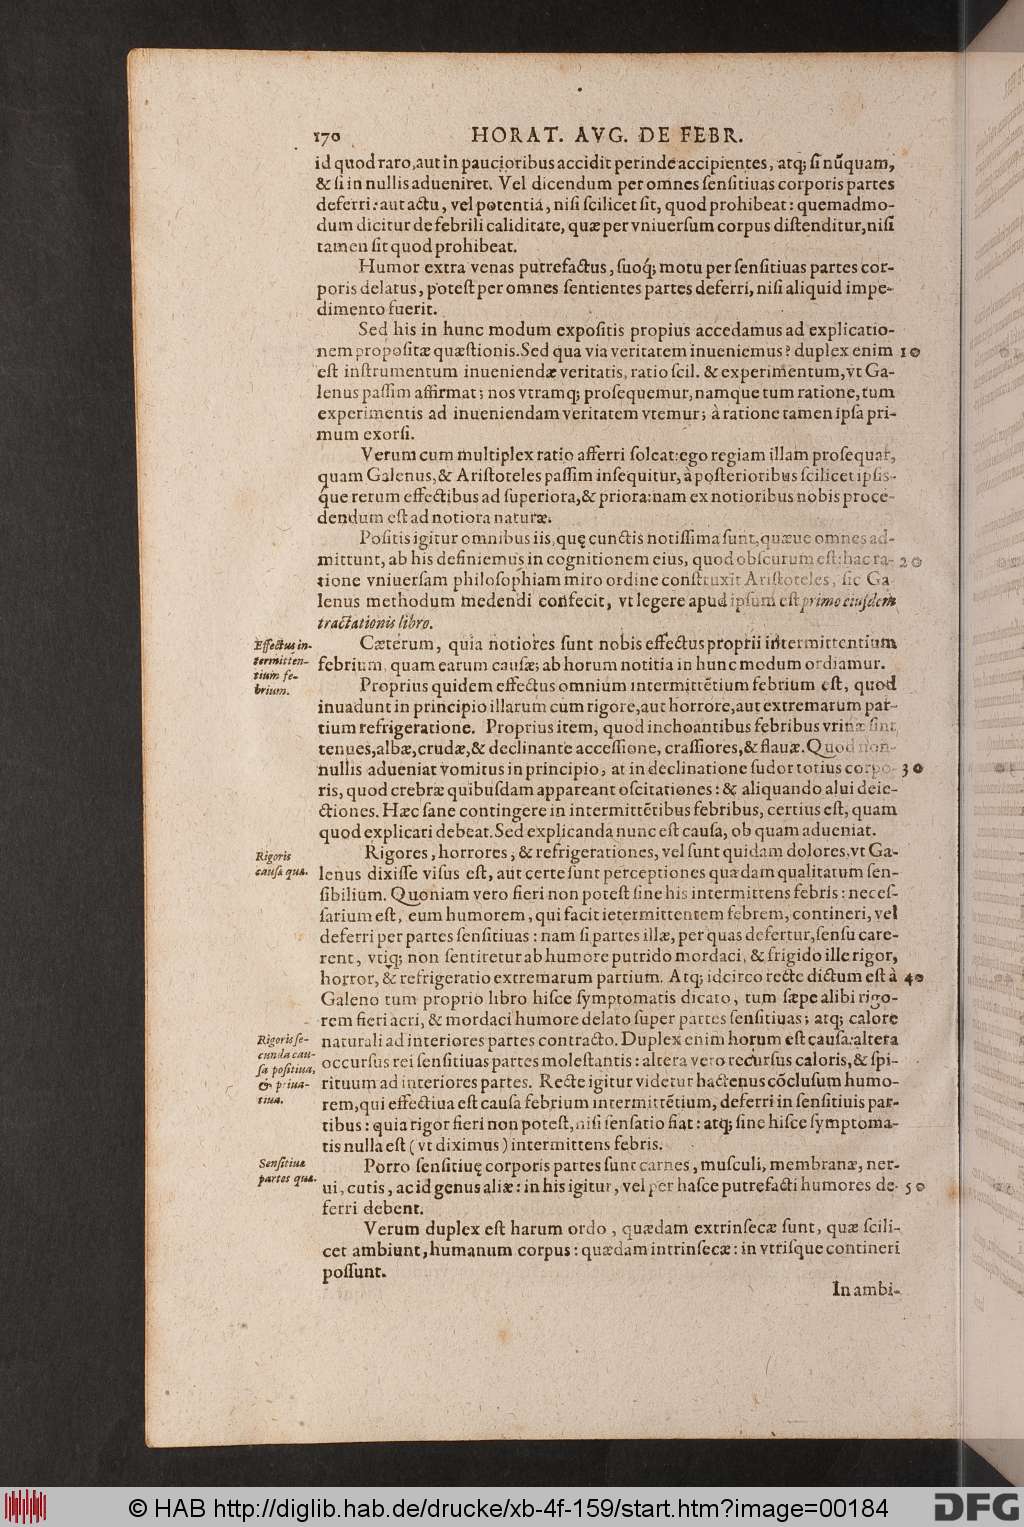 170 HORAT. AVG. DE FEBR.
id quod raro, aut in paucioribus accidit perinde accipientes, atq; si nũquam,
& si in nullis adueniret. Vel dicendum per omnes sensitiuas corporis partes
deferri: aut actu, vel potentiâ, nisi scilicet sit, quod prohibeat: quemadmo-
dum dicitur de febrili caliditate, quæ per vniuersum corpus distenditur, nisi
tamen sit quod prohibeat.
Humor extra venas putrefactus, suoq́; motu per sensitiuas partes cor-
poris delatus, potest per omnes sentientes partes deferri, nisi aliquid impe-
dimento fuerit.
Sed his in hunc modum expositis propius accedamus ad explicatio-
nem propositæ quæstionis. Sed qua via veritatem inueniemus? duplex enim 10
est instrumentum inueniendæ veritatis, ratio scil. & experimentum, vt Ga-
lenus passim affirmat; nos vtramq; prosequemur, namque tum ratione, tum
experimentis ad inueniendam veritatem vtemur; à ratione tamen ipsa pri-
mum exorsi.
Verum cum multiplex ratio afferri soleat: ego regiam illam prosequar,
quam Galenus, & Aristoteles passim insequitur, à posterioribus scilicet ipsis-
q́ue rerum effectibus ad superiora, & priora: nam ex notioribus nobis proce-
dendum est ad notiora naturæ.
Positis igitur omnibus iis, quę cunctis notissima sunt, quæue omnes ad-
mittunt, ab his definiemus in cognitionem eius, quod obscurum est: hac ra- 20
tione vniuersam philosophiam miro ordine construxit Aristoteles, sic Ga-
lenus methodum medendi confecit, vt legere apud ipsum est primo eiusdem
tractationis libro.
Effectus in-
termitten-
tium fe-
brium.
Cæterum, quia notiores sunt nobis effectus proprii intermittentium
febrium, quam earum causæ; ab horum notitia in hunc modum ordiamur.
Proprius quidem effectus omnium intermittẽtium febrium est, quod
inuadunt in principio illarum cum rigore, aut horrore, aut extremarum par-
tium refrigeratione. Proprius item, quod inchoantibus febribus vrinæ sint
tenues, albæ, crudæ, & declinante accessione, crassiores, & flauæ. Quod non-
nullis adueniat vomitus in principio, at in declinatione sudor totius corpo- 30
ris, quod crebræ quibusdam appareant oscitationes: & aliquando alui deie-
ctiones. Hæc sane contingere in intermittẽtibus febribus, certius est, quam
quod explicari debeat. Sed explicanda nunc est causa, ob quam adueniat.
Rigoris
causa quæ.
Rigores, horrores, & refrigerationes, vel sunt quidam dolores, vt Ga-
lenus dixisse visus est, aut certe sunt perceptiones quædam qualitatum sen-
sibilium. Quoniam vero fieri non potest sine his intermittens febris: neces-
sarium est, eum humorem, qui facit ietermittentem febrem, contineri, vel
deferri per partes sensitiuas: nam si partes illæ, per quas defertur, sensu care-
rent, vtiq; non sentiretur ab humore putrido mordaci, & frigido ille rigor,
horror, & refrigeratio extremarum partium. Atq; idcirco recte dictum est à 40
Galeno tum proprio libro hisce symptomatis dicato, tum sæpe alibi rigo-
rem fieri acri, & mordaci humore delato super partes sensitiuas; atq; calore
Rigoris se-
cunda cau-
sa positiua,
& priua-
tiua.
naturali ad interiores partes contracto. Duplex enim horum est causa: altera
occursus rei sensitiuas partes molestantis: altera vero recursus caloris, & spi-
rituum ad interiores partes. Recte igitur videtur hactenus cõclusum humo-
rem, qui effectiua est causa febrium intermittẽtium, deferri in sensitiuis par-
tibus: quia rigor fieri non potest, nisi sensatio fiat: atq; sine hisce symptoma-
tis nulla est (vt diximus) intermittens febris.
Sensitiuæ
partes quæ.
Porro sensitiuę corporis partes sunt carnes, musculi, membranæ, ner-
ui, cutis, ac id genus aliæ: in his igitur, vel per hasce putrefacti humores de- 50
ferri debent.
Verum duplex est harum ordo, quædam extrinsecæ sunt, quæ scili-
cet ambiunt, humanum corpus: quædam intrinsecæ: in vtrisque contineri
possunt.
In ambi-
© HAB http://diglib.hab.de/drucke/xb-4f-159/start.htm?image=00184
DFG